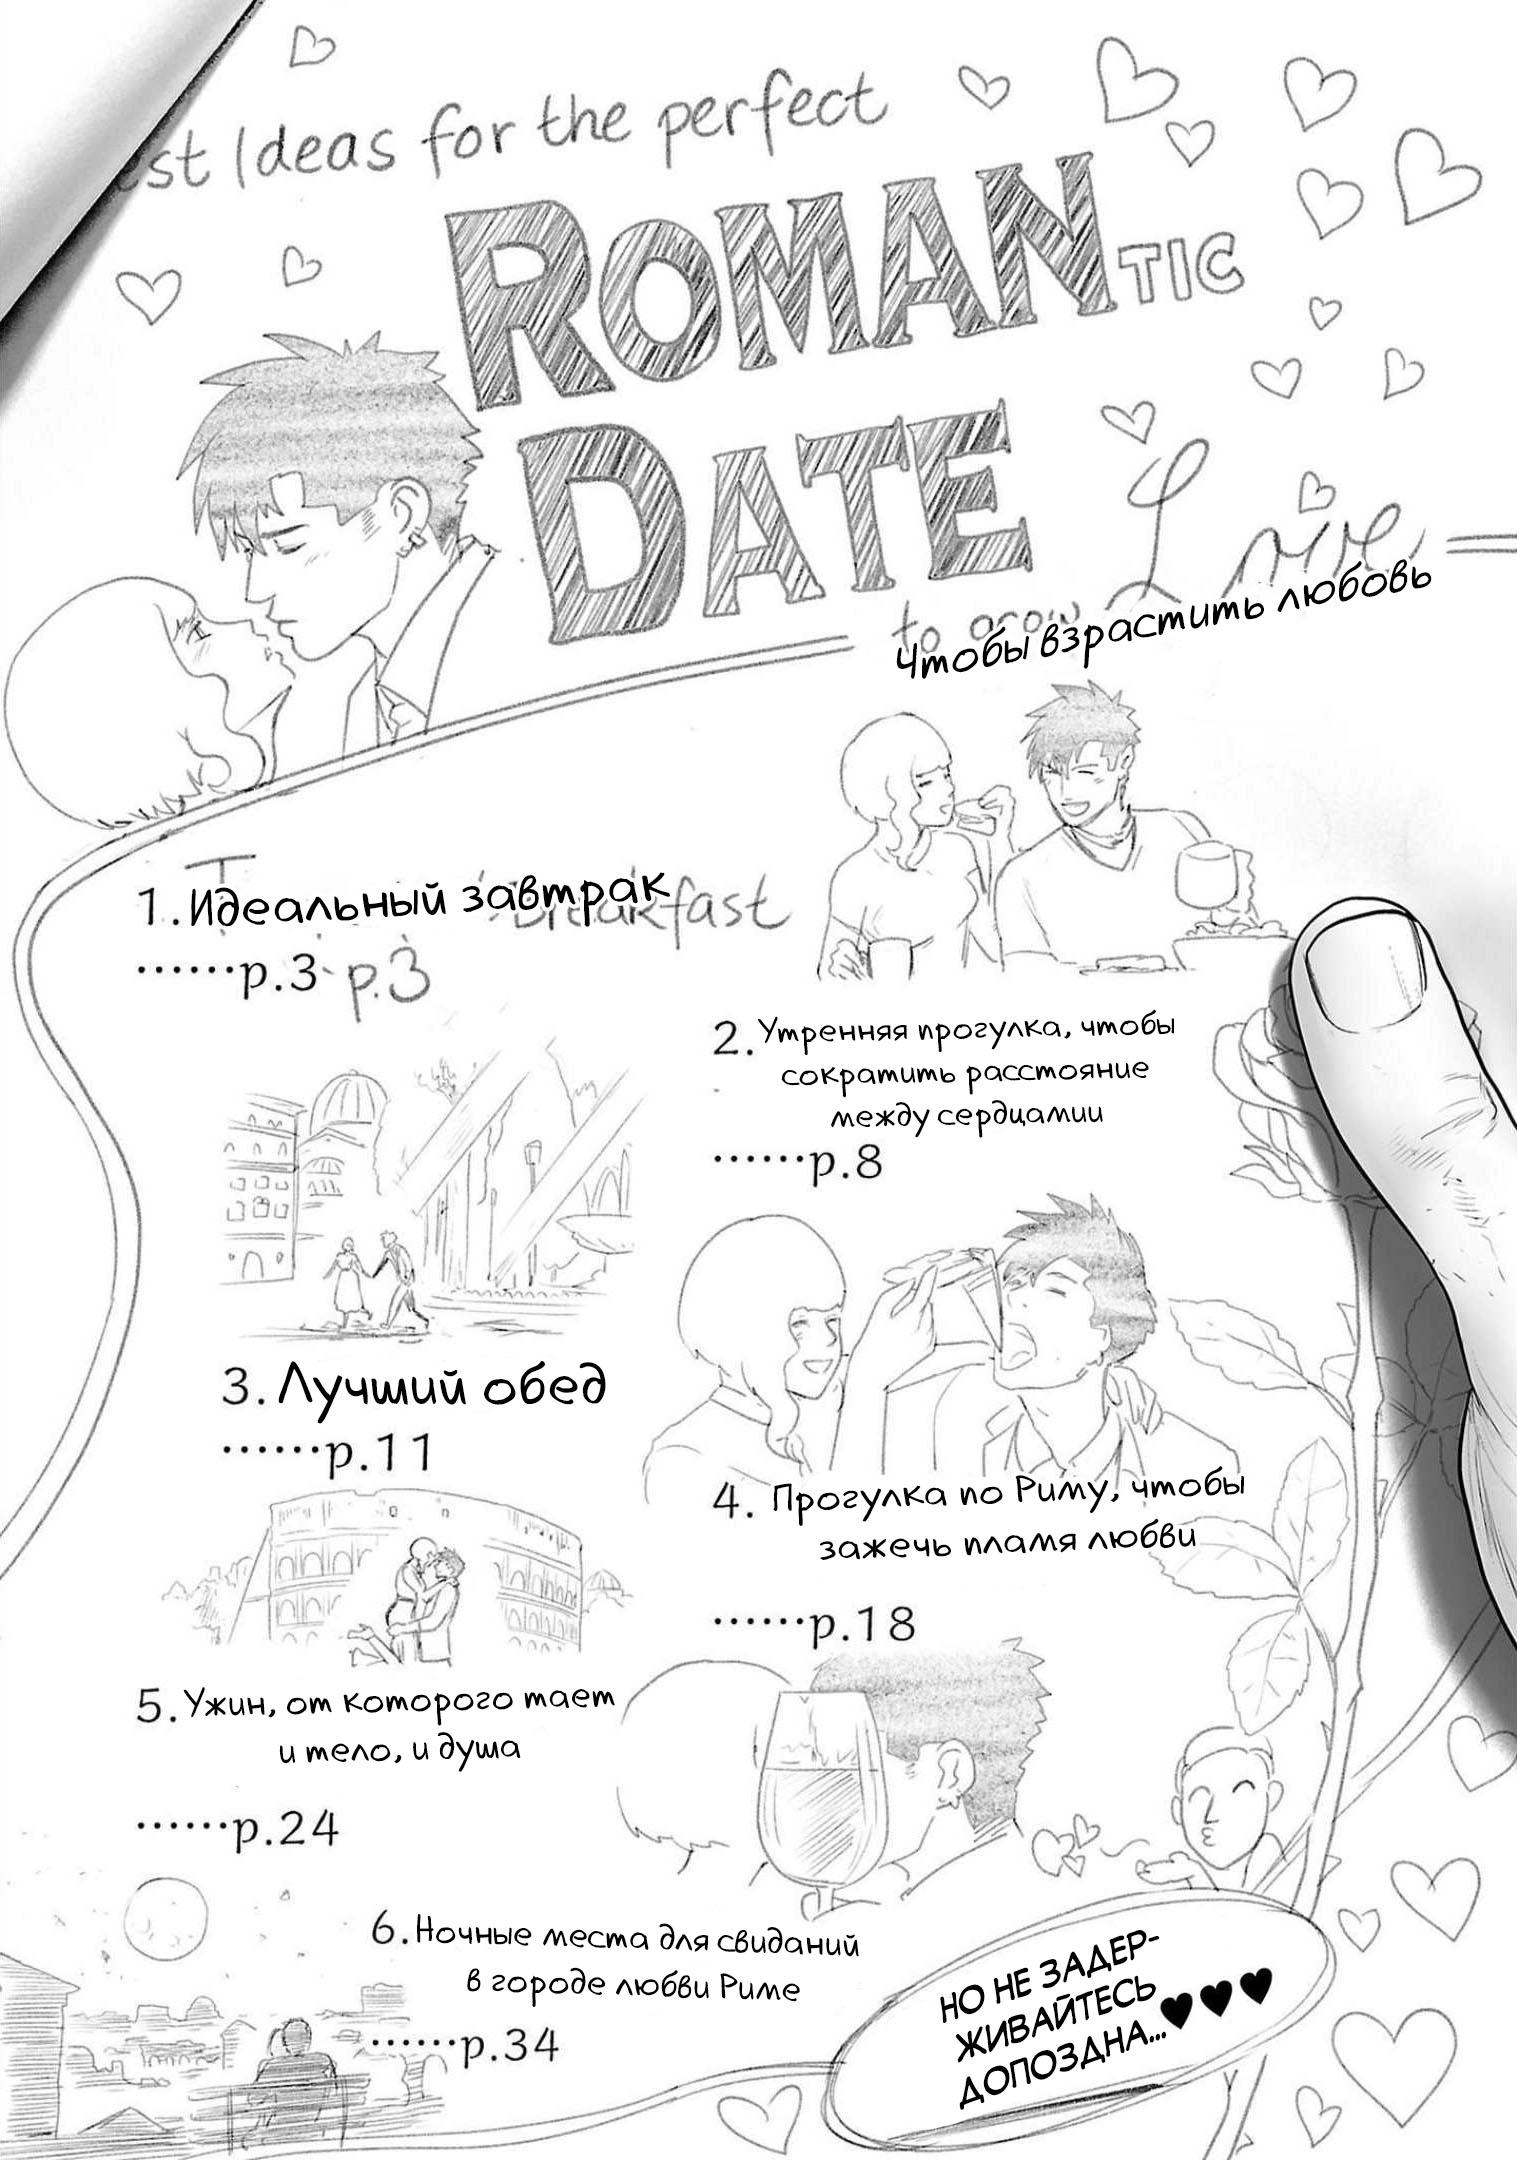 est Ideas for the perfect
ROMANTIC
DATE
to grow Love
Чтобы взрастить любовь
1. Идеальный завтрак
Breakfast
......p.3
p.3
2. Утренняя прогулка, чтобы
сократить расстояние
между сердцамии
......p.8
3. Лучший обед
......p.11
4. Прогулка по Риму, чтобы
зажечь пламя любви
......p.18
5. Ужин, от которого тает
и тело, и душа
......p.24
6. Ночные места для свиданий
в городе любви Риме
......p.34
НО НЕ ЗАДЕР-
ЖИВАЙТЕСЬ
ДОПОЗДНА...♥♥♥